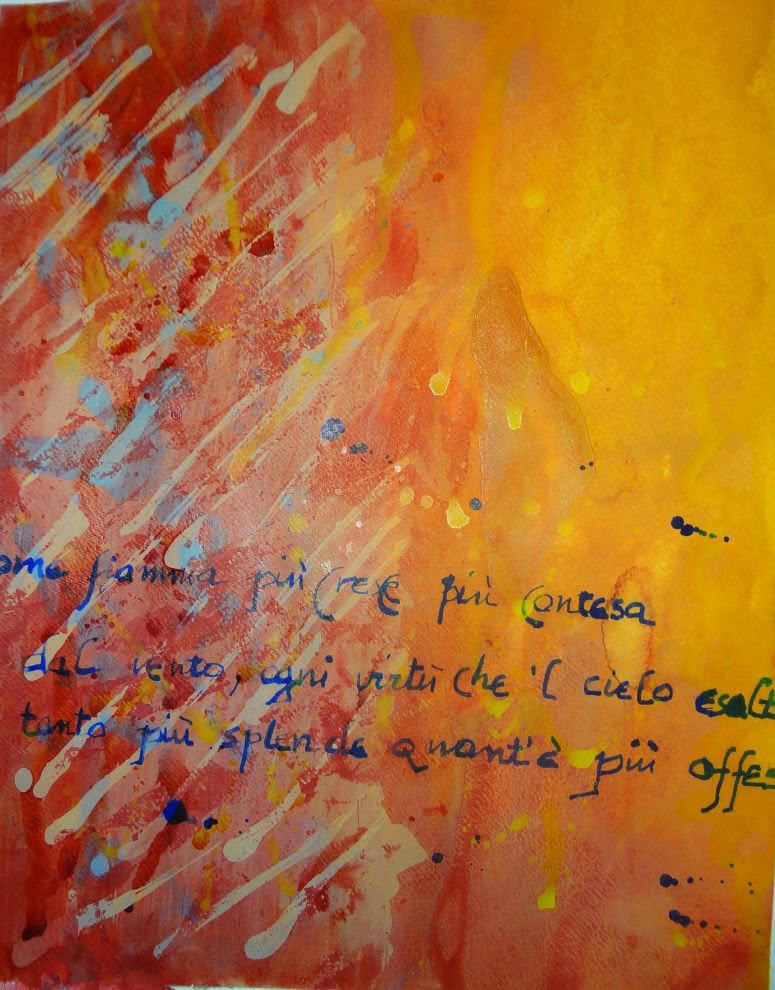 ome fiamma più crese più contesa
dal vento, ogni virtù che 'l cielo esalt
tanto più splende quant'è più offes